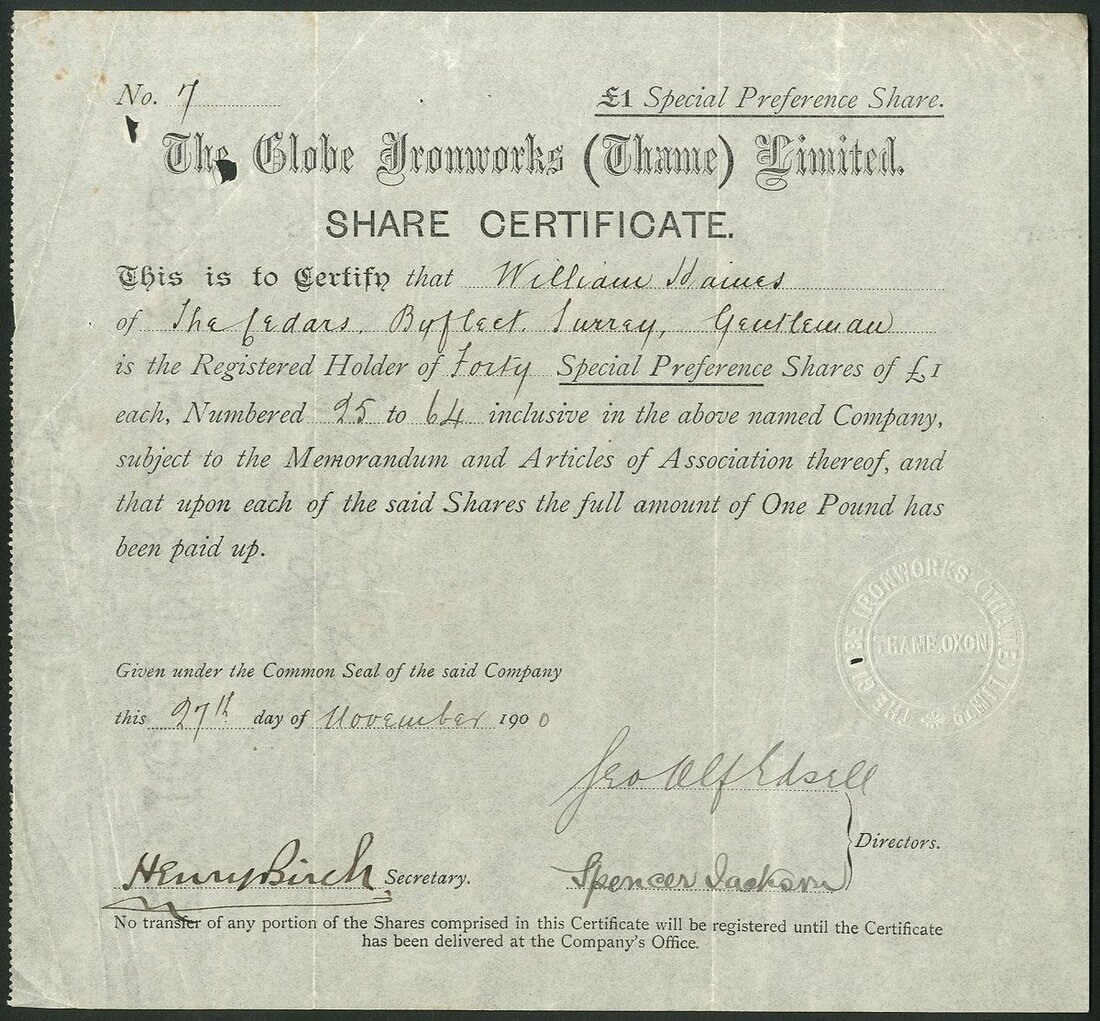 No. 7
£1 Special Preference Share.
The Globe Ironworks (Thame) Limited.
SHARE CERTIFICATE.
This is to Certify that William Haines
of The Cedars. Byfleet. Surrey, Gentleman
is the Registered Holder of Forty Special Preference Shares of £1
each, Numbered 25 to 64 inclusive in the above named Company,
subject to the Memorandum and Articles of Association thereof, and
that upon each of the said Shares the full amount of One Pound has
been paid up.
THE GLOBE IRONWORKS (THAME) LIMITED
THAME, OXON
Given under the Common Seal of the said Company
this 27th day of November 1900
Geo Alf Edsell
Directors.
Henry Birch Secretary.
Spencer Jackson
No transfer of any portion of the Shares comprised in this Certificate will be registered until the Certificate
has been delivered at the Company's Office.